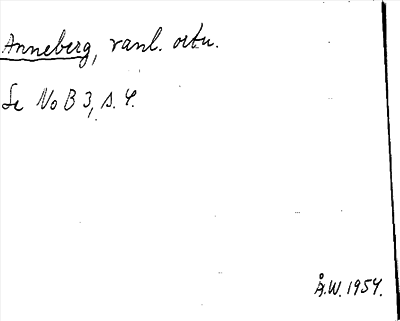 Anneberg, vanl. ortn.
Se NoB 3, s. 4.
Å.W. 1954.